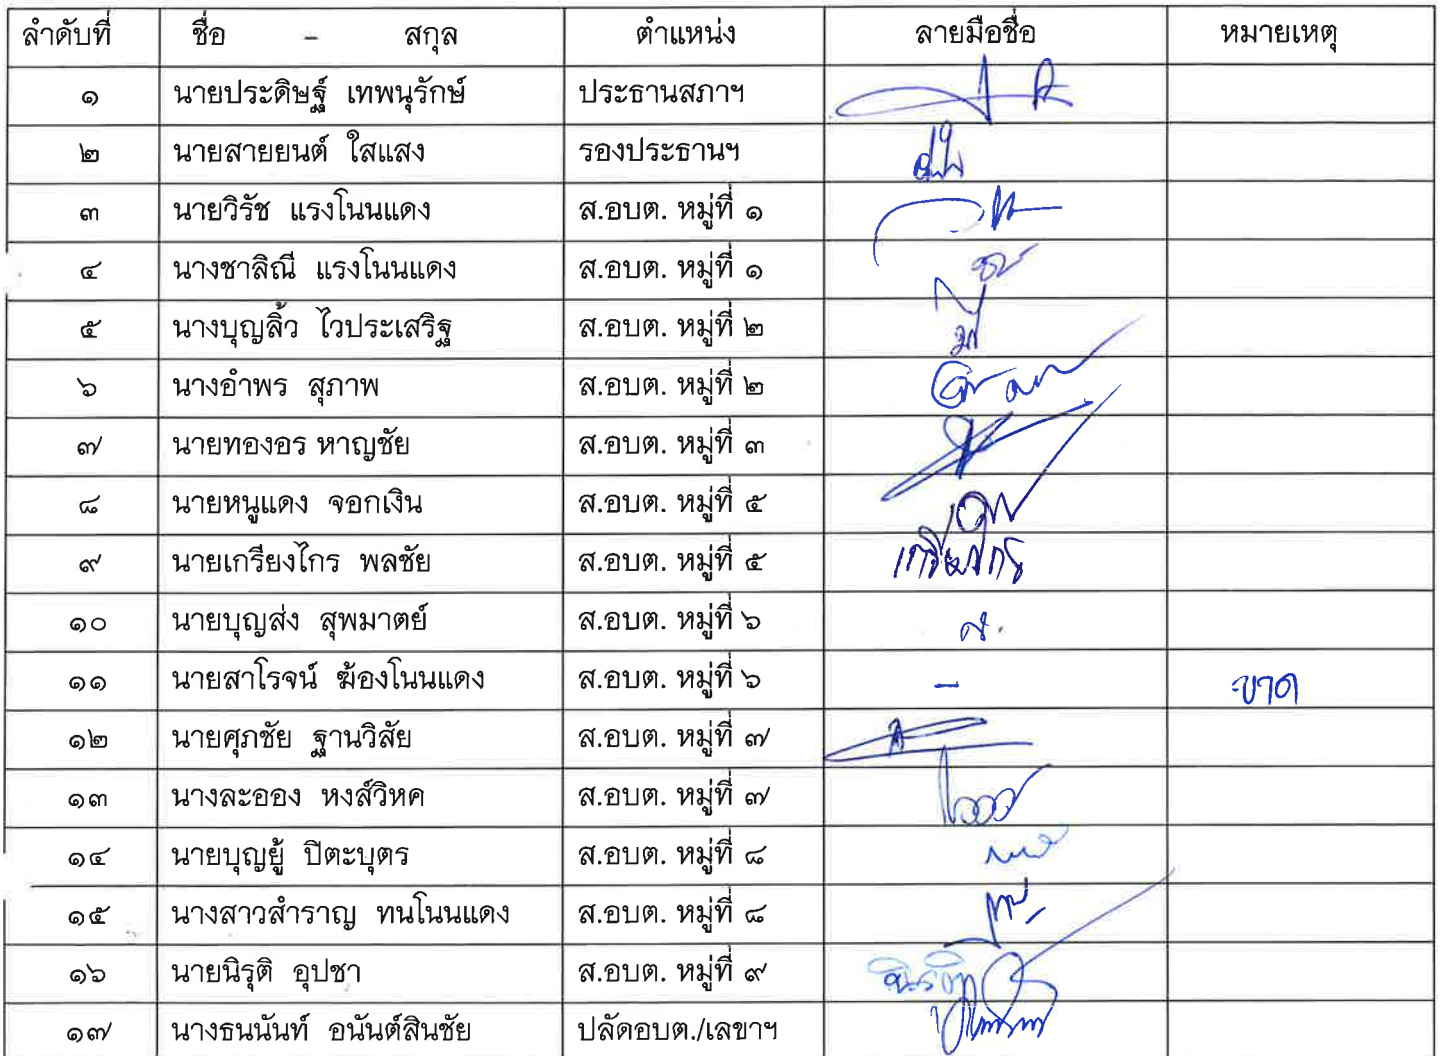 ลำดับที่ ชื่อ - สกุล ตำแหน่ง ลายมือชื่อ หมายเหตุ
๑ นายประดิษฐ์ เทพนุรักษ์ ประธานสภาฯ
๒ นายสายยนต์ ใสแสง รองประธานฯ
๓ นายวิรัช แรงโนนแดง ส.อบต. หมู่ที่ ๑
๔ นางชาลิณี แรงโนนแดง ส.อบต. หมู่ที่ ๑
๕ นางบุญลิ้ว ไวประเสริฐ ส.อบต. หมู่ที่ ๒
๖ นางอำพร สุภาพ ส.อบต. หมู่ที่ ๒
๗ นายทองอร หาญชัย ส.อบต. หมู่ที่ ๓
๘ นายหนูแดง จอกเงิน ส.อบต. หมู่ที่ ๕
๙ นายเกรียงไกร พลชัย ส.อบต. หมู่ที่ ๕ เกรียงไกร
๑๐ นายบุญส่ง สุพมาตย์ ส.อบต. หมู่ที่ ๖
๑๑ นายสาโรจน์ ฆ้องโนนแดง ส.อบต. หมู่ที่ ๖ - ขาด
๑๒ นายศุภชัย ฐานวิสัย ส.อบต. หมู่ที่ ๗
๑๓ นางละออง หงส์วิหค ส.อบต. หมู่ที่ ๗
๑๔ นายบุญยู้ ปิตะบุตร ส.อบต. หมู่ที่ ๘
๑๕ นางสาวสำราญ ทนโนนแดง ส.อบต. หมู่ที่ ๘
๑๖ นายนิรุติ อุปชา ส.อบต. หมู่ที่ ๙ นิรุติ
๑๗ นางธนนันท์ อนันต์สินชัย ปลัดอบต./เลขาฯ